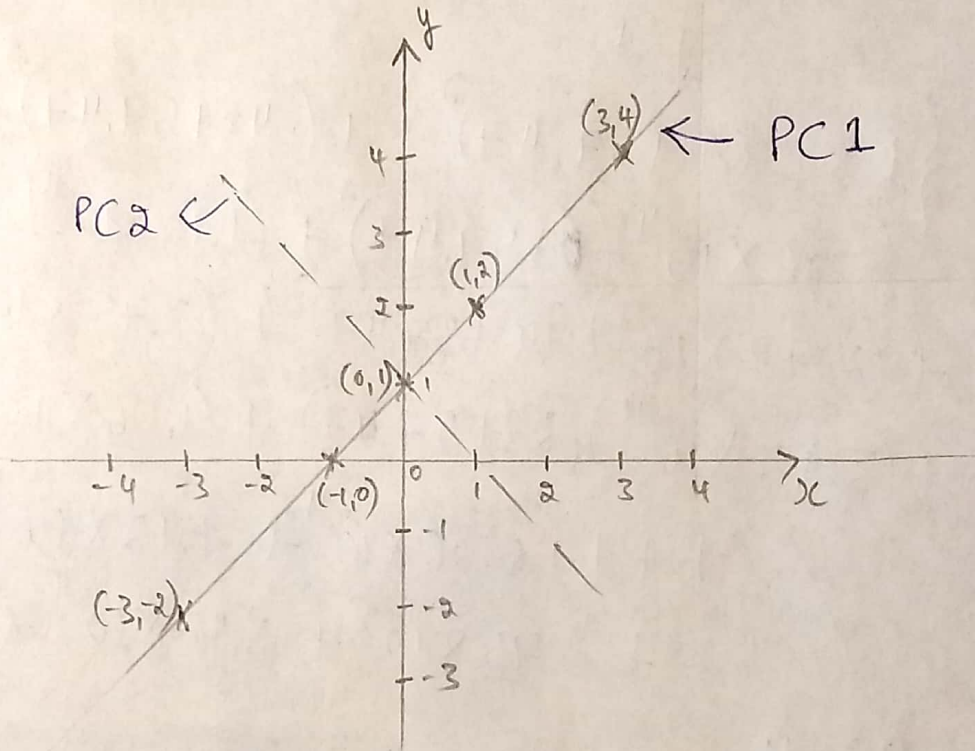 y
(3,4)
← PC1
4
PC2 ↙
3
(1,2)
2
(0,1) 1
-4 -3 -2 0 1 2 3 4 x
(-1,0)
-1
(-3,-2) -2
-3